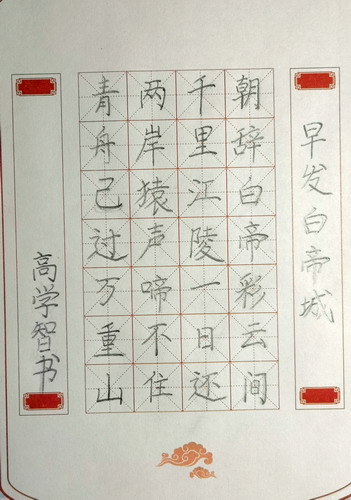 早发白帝城
朝辞白帝彩云间
千里江陵一日还
两岸猿声啼不住
青舟己过万重山
高学智书